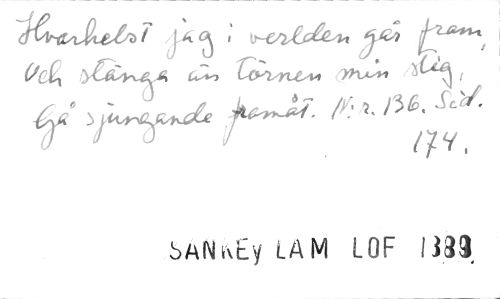 Hvarhelst jag i verlden går fram,
Och stänga än törnen min stig,
Gå sjungande framåt. N:r. 136. Sid.
174.
SANKEY LAM LOF 1889